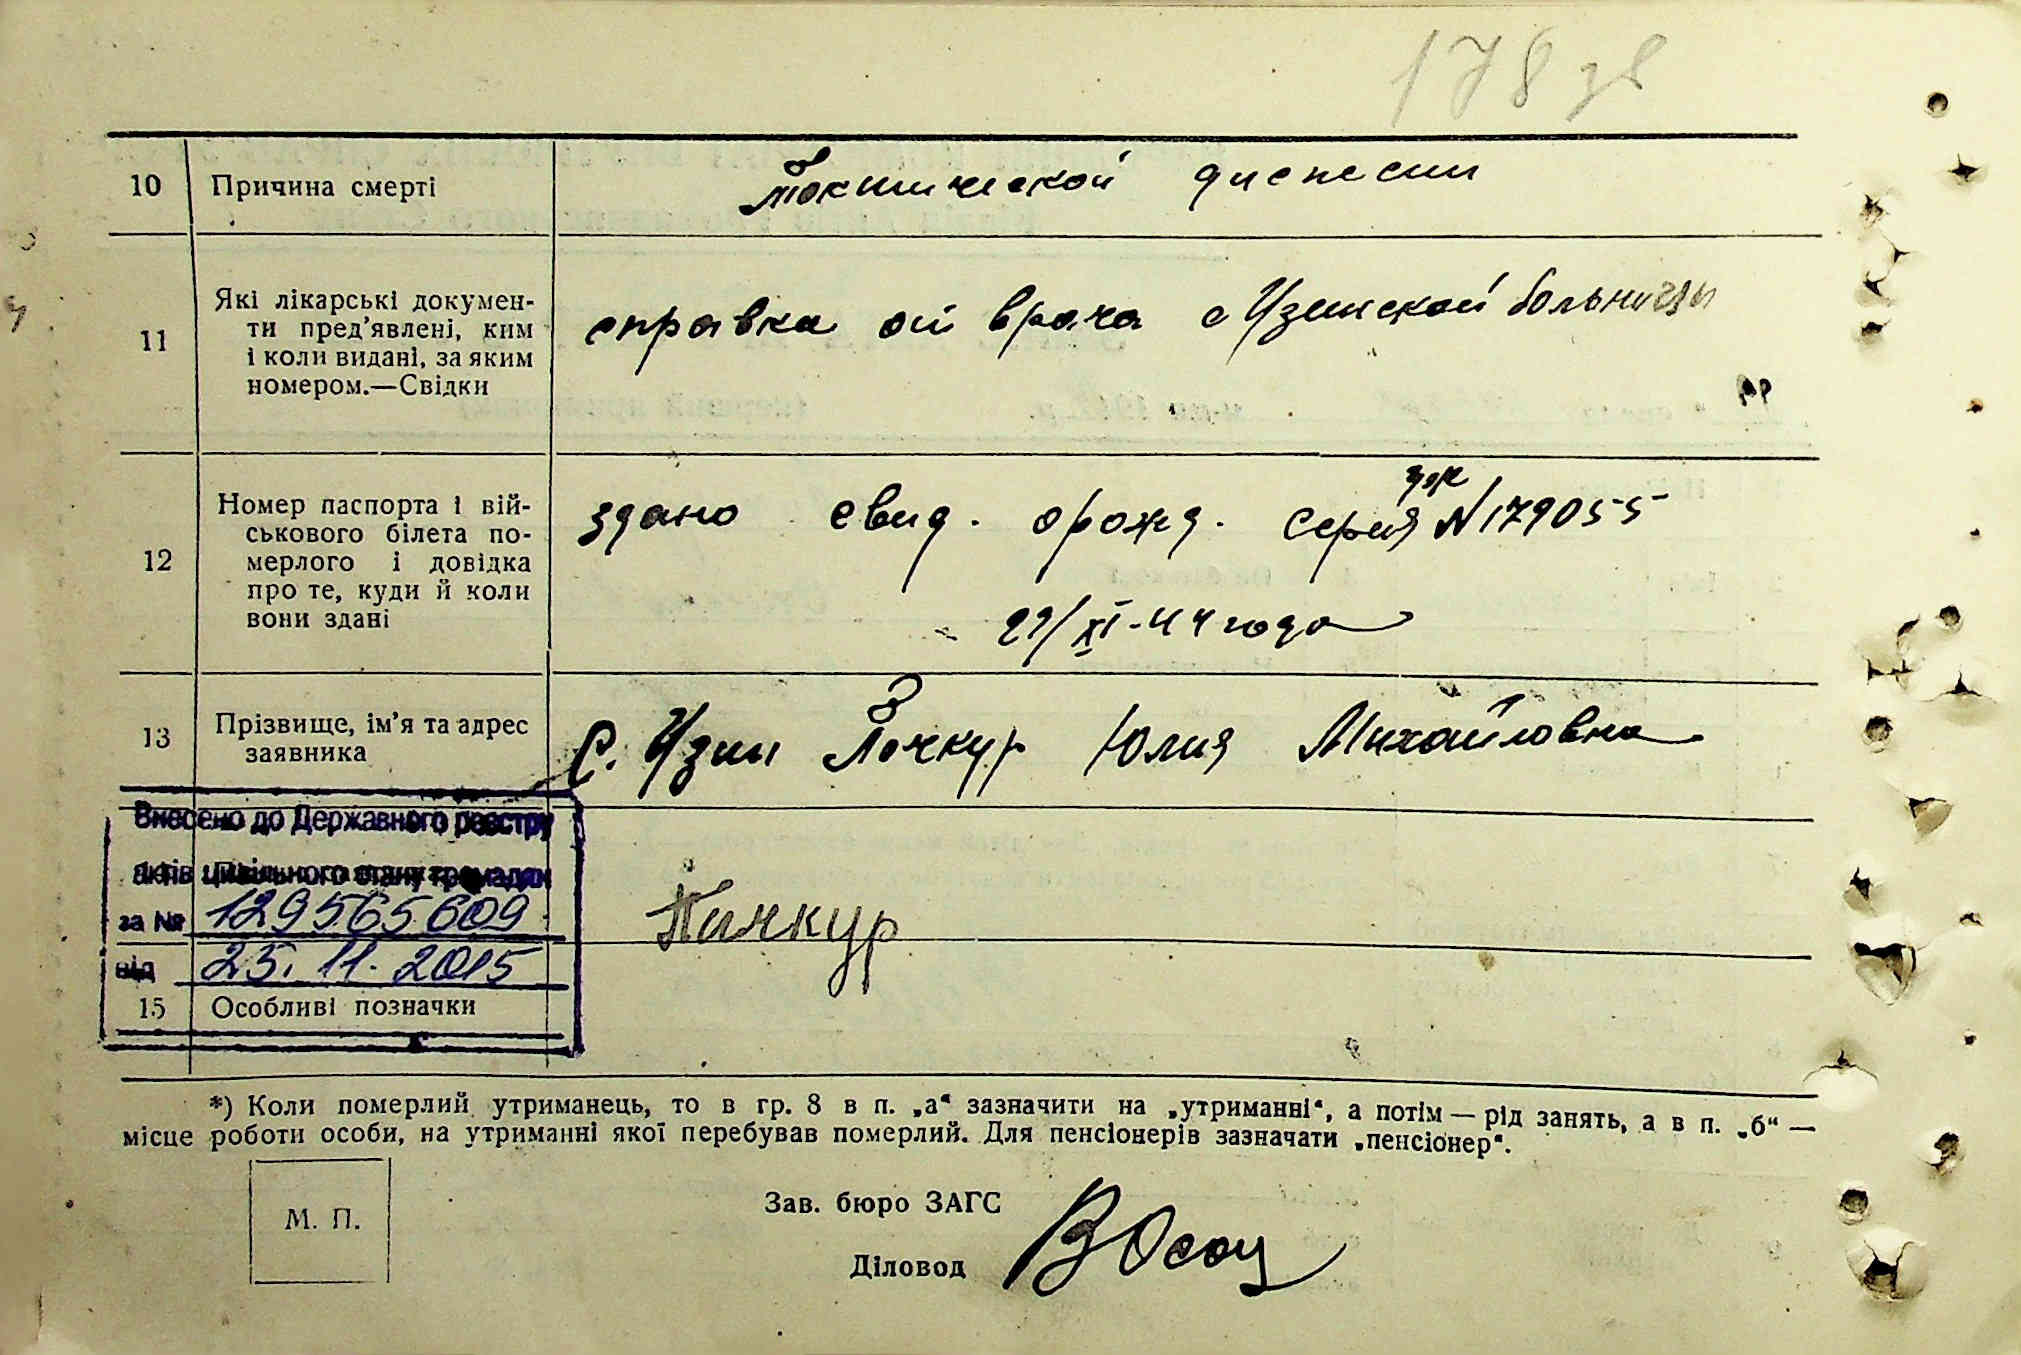 178 зв
10 Причина смерті токсической диспесии
11 Які лікарські докумен-
ти пред'явлені, ким
і коли видані, за яким
номером.—Свідки
справка от врача с Узинской больницы
12 Номер паспорта і вій-
ськового білета по-
мерлого і довідка
про те, куди й коли
вони здані
здано свид. о рожд. серия N 179055
29/XI-44 года
13 Прізвище, ім'я та адрес
заявника
С. Узин Почкур Юлия Михайловна
Внесено до Державного реєстру
актів цивільного стану громадян
за № 129565609
від 25.11.2015
Пачкур
15 Особливі позначки
*) Коли померлий утриманець, то в гр. 8 в п. „а“ зазначити на „утриманні“, а потім — рід занять, а в п. „б“ —
місце роботи особи, на утриманні якої перебував померлий. Для пенсіонерів зазначати „пенсіонер“.
М. П.
Зав. бюро ЗАГС
Діловод